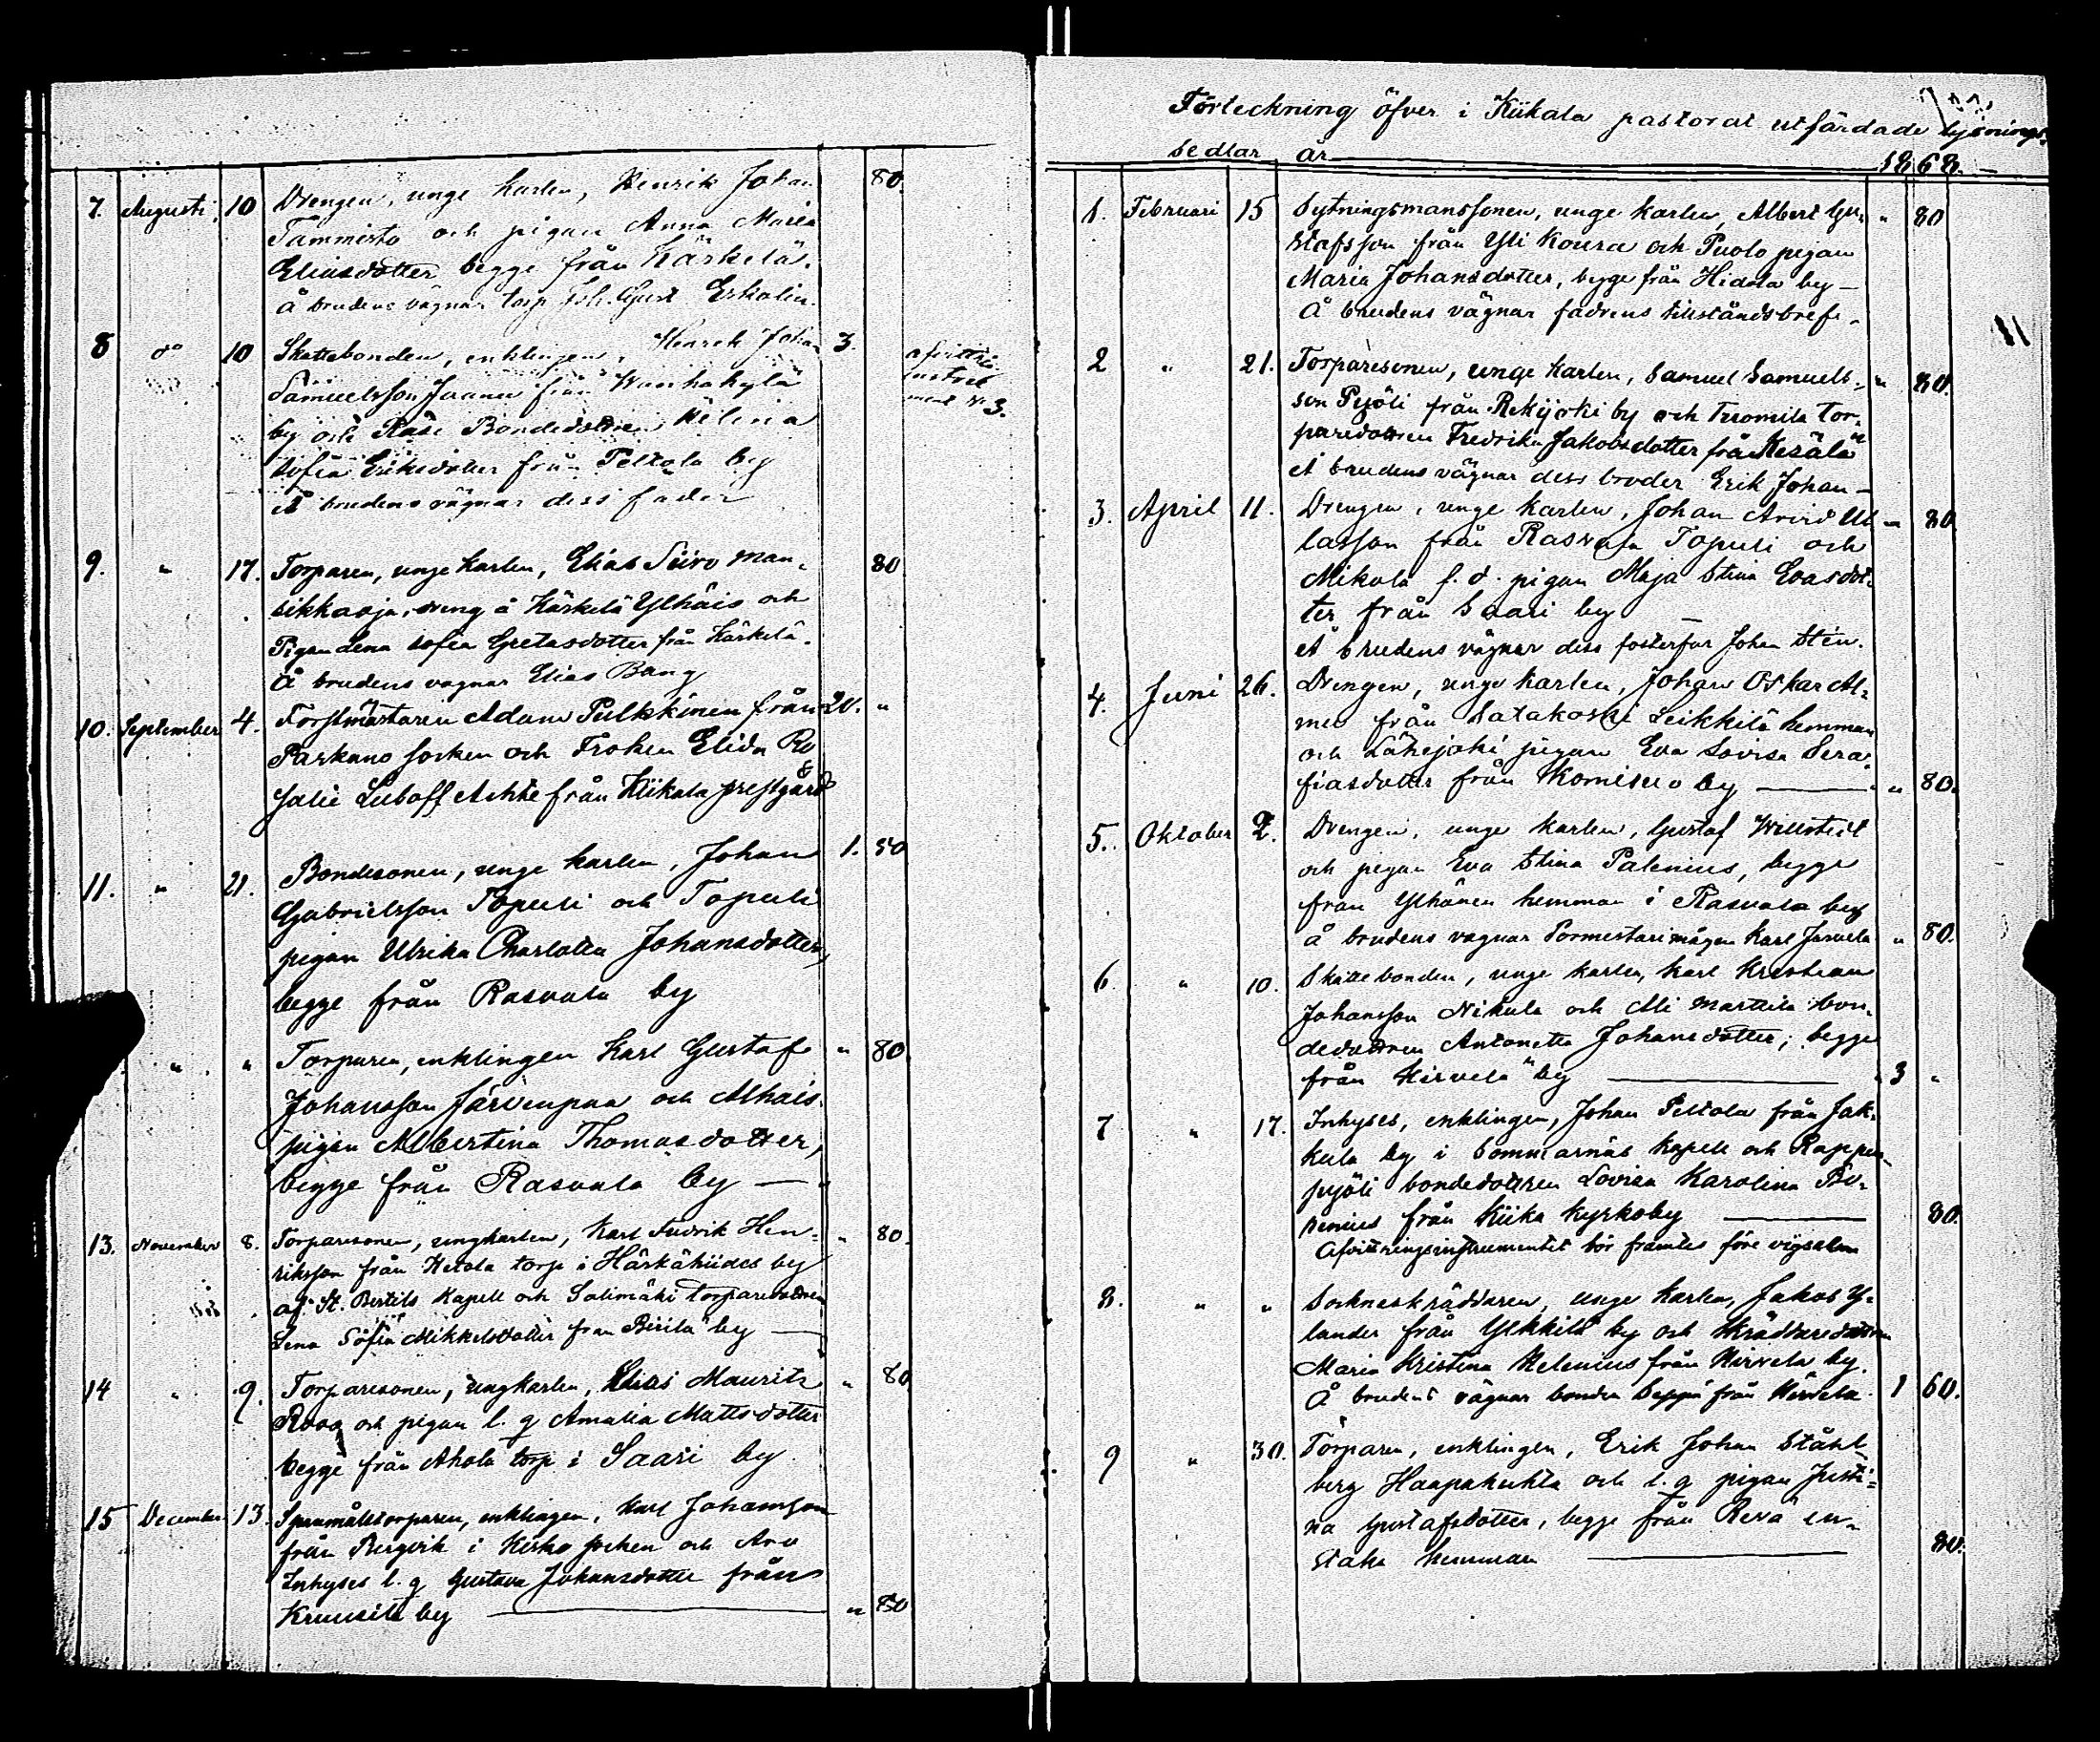 7. Augusti 10 Drengen, unge karlen, Henrik Johan 80.
Tammisto och pigan Anna Maria
Eliasdotter begge från Kärkelä.
Å brudens vägnar torp. Joh. Gust Eskolin.
8 do 10 Skattebonden, enklingen, Henrik Johan 3.
Samuelsson Jaanu från Wanhakylä
by och Räse Bondedottren Helena
Sofia Eriksdotter från Peltola by
Å brudens vägnar dess fader
afvittrings
instru
ment N 3.
9. " 17. Torparen, unge karlen, Elias Siiro Man- 80
sikkaoja, dreng å Kärkelä Ylhäis och
Pigan Lena Sofia Gretasdotter från Kärkelä.
Å brudens vägnar Elias Bang
10. September 4. Forstmästaren Adam Pulkkinen från 20. "
Parkano socken och Fröken Elida Ro
salie Luboff Achté från Kiikala prestgård
11. " 21. Bondesonen, unge karlen, Johan 1. 50
Gabrielsson Topuli och Topuli
pigan Ulrika Charlotta Johansdotter,
begge från Rasvala by
" " Torparen, enklingen Karl Gustaf " 80
Johansson Järvenpää och Alhais
pigan Albertina Thomasdotter,
begge från Rasvala by —
13. November 8. Torparesonen, ungkarlen, Karl Fredrik Hen- " 80.
riksson från Ketola torp i Härkähiides by
af St. Bertils Kapell och Salimäki torparedottren
Lena Sofia Mikkelsdotter från Pirilä by —
14 " 9. Torparesonen, ungkarlen, Elias Mauritz " 80
Roos och pigan l. q Amalia Mattsdotter
begge från Ahola torp i Saari by
15 December 13. Spanmålstorparen, enklingen, Karl Johansson
från Bergvik i Kisko socken och Aro
Inhyses l. q Gustava Johansdotter från
Kruusila by — " 80
Förteckning öfver i Kiikala pastorat utfärdade lysnings-
sedlar år 1868.
11
1. Februari 15 Sytningsmanssonen, unge karlen, Albert Gu- " 80
stafsson från Yli Koura och Puolo pigan
Maria Johansdotter, begge från Hidola by —
Å brudens vägnar fadrens tillståndsbref.
2 " 21. Torparesonen, unge karlen, Samuel Samuels- " 80.
son Pyöli från Rekijoki by och Tuomila tor-
paredottren Fredrika Jakobsdotter från Kesälä
Å brudens vägnar dess broder Erik Johan —
3. April 11. Drengen, unge karlen, Johan Arvid Ul- " 80
lasson från Rasvala Topuli och
Mikola f. d. pigan Maja Stina Evasdot-
ter från Saari by —
Å brudens vägnar dess fosterfar Johan Sten.
4. Juni 26. Drengen, unge karlen, Johan Oskar Al-
men från Satakoski Leikkilä hemman
och Lähejoki pigan Eva Lovisa Sera-
fiasdotter från Komisuo by — " 80.
5. Oktober 2. Drengen, unge karlen, Gustaf Willstedt
och pigan Eva Stina Palenius, begge
från Ylhänen hemman i Rasvala by
å brudens vägnar Pormestari mågen Karl Jarvela " 80.
6. " 10. Skattebonden, unge karlen, Karl Kristian
Johansson Nikula och Ali Marttila bon-
dedottren Antonetta Johansdotter, begge
från Hirvelä by — 3 "
7 " 17. Inhyses, enklingen, Johan Peltola från Jak-
kula by i Sommarnäs kapell och Rappu-
pyöli bondedottren Lovisa Karolina Bo-
renius från Kiika kyrkoby — 80.
Afvittringsinstrumentet bör framtes före vigseln
8. " " Sockneskräddaren, unge karlen, Jakob Y-
lander från Ylkkilä by och Skräddaredottren
Maria Kristina Helenius från Hirvela by.
Å brudens vägnar bonden Seppä från Hirvela. 1 60.
9 " 30. Torparen, enklingen, Erik Johan Stahl
berg Haapakuhta och l. q pigan Justi-
na Gustafsdotter, begge från Revä en-
staka hemman — 80.